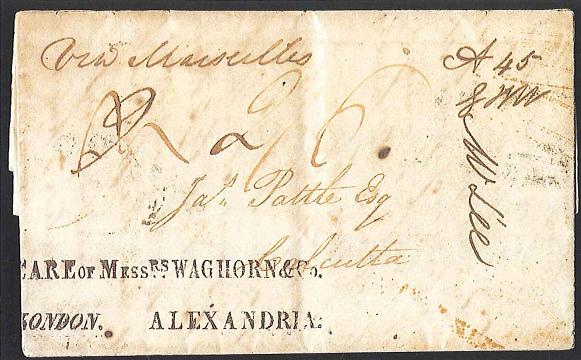 Via Marseilles
A 45
Jas. Pattle Esq
Calcutta
CARE OF MESSRS WAGHORN & Co.
LONDON. ALEXANDRIA.
W Lee